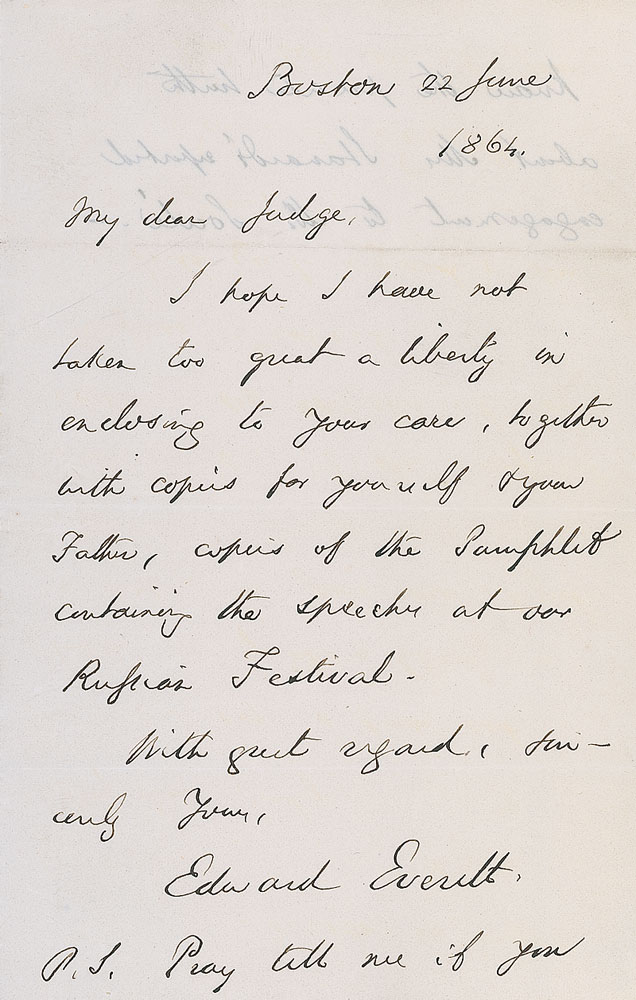 Boston 22 June
1864.
My dear Judge,
I hope I have not
taken too great a liberty in
enclosing to your care, together
with copies for yourself & your
Father, copies of the Pamphlet
containing the speeches at our
Russian Festival.
With great regard, sin-
cerely Yours,
Edward Everett.
P.S. Pray tell me if you